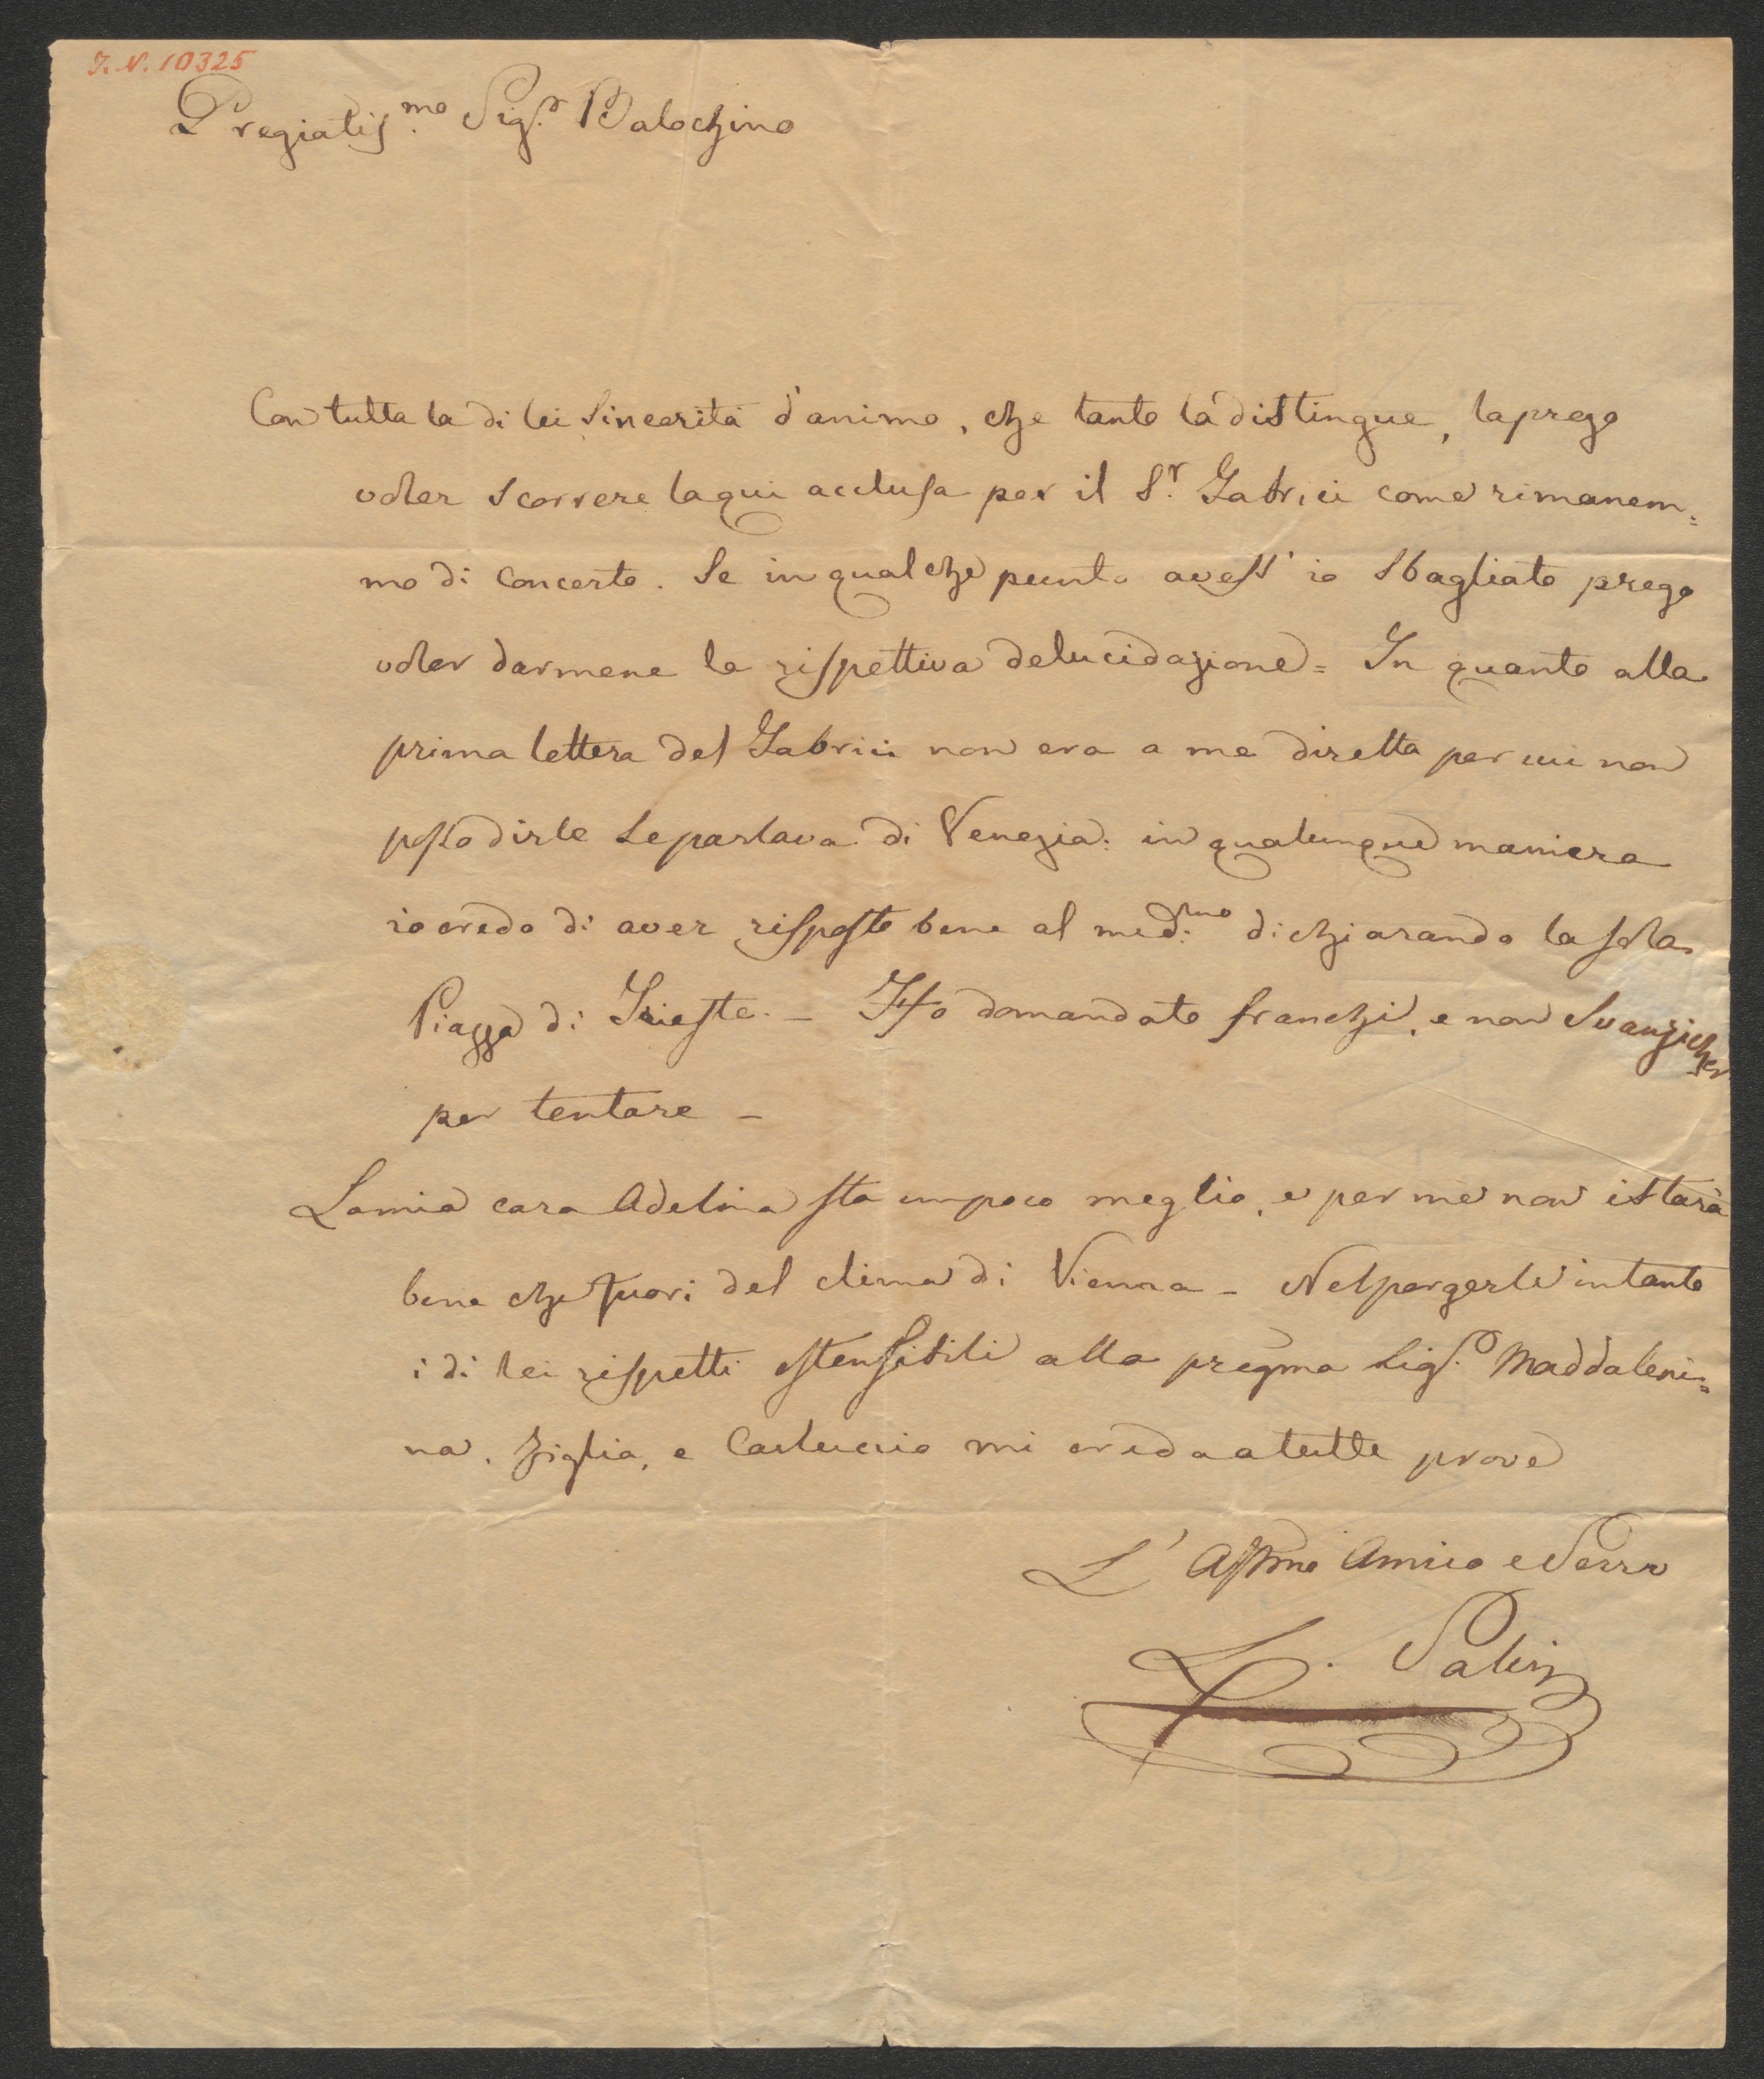 J. N. 10325
Pregiatis.mo Sig.r Balochino
Con tutta la di lei sincerità d'animo, che tanto la distingue, la prego
voler scorrere la qui acclusa per il S.r Gabrici come rimanem=
mo di concerto. Se in qualche punto avess' io sbagliato prego
voler darmene la rispettiva delucidazione = In quanto alla
prima lettera del Gabrici non era a me diretta per cui non
posso dirle se parlava di Venezia: in qualunque maniera
io credo di aver risposto bene al med:mo dichiarando la sola
Piazza di Trieste. – Ho domandato franchi, e non Svanzicher
per tentare –
La mia cara Adelina sta un poco meglio, e per me non istarà
bene che fuori del clima di Vienna – Nel porgerle intanto
i di lei rispetti ostensibili alla pregma Sig.a Maddaleni=
na, figlia, e Carluccio mi creda a tutte prove
L' Affmo Amico e Serv
L. Salvi